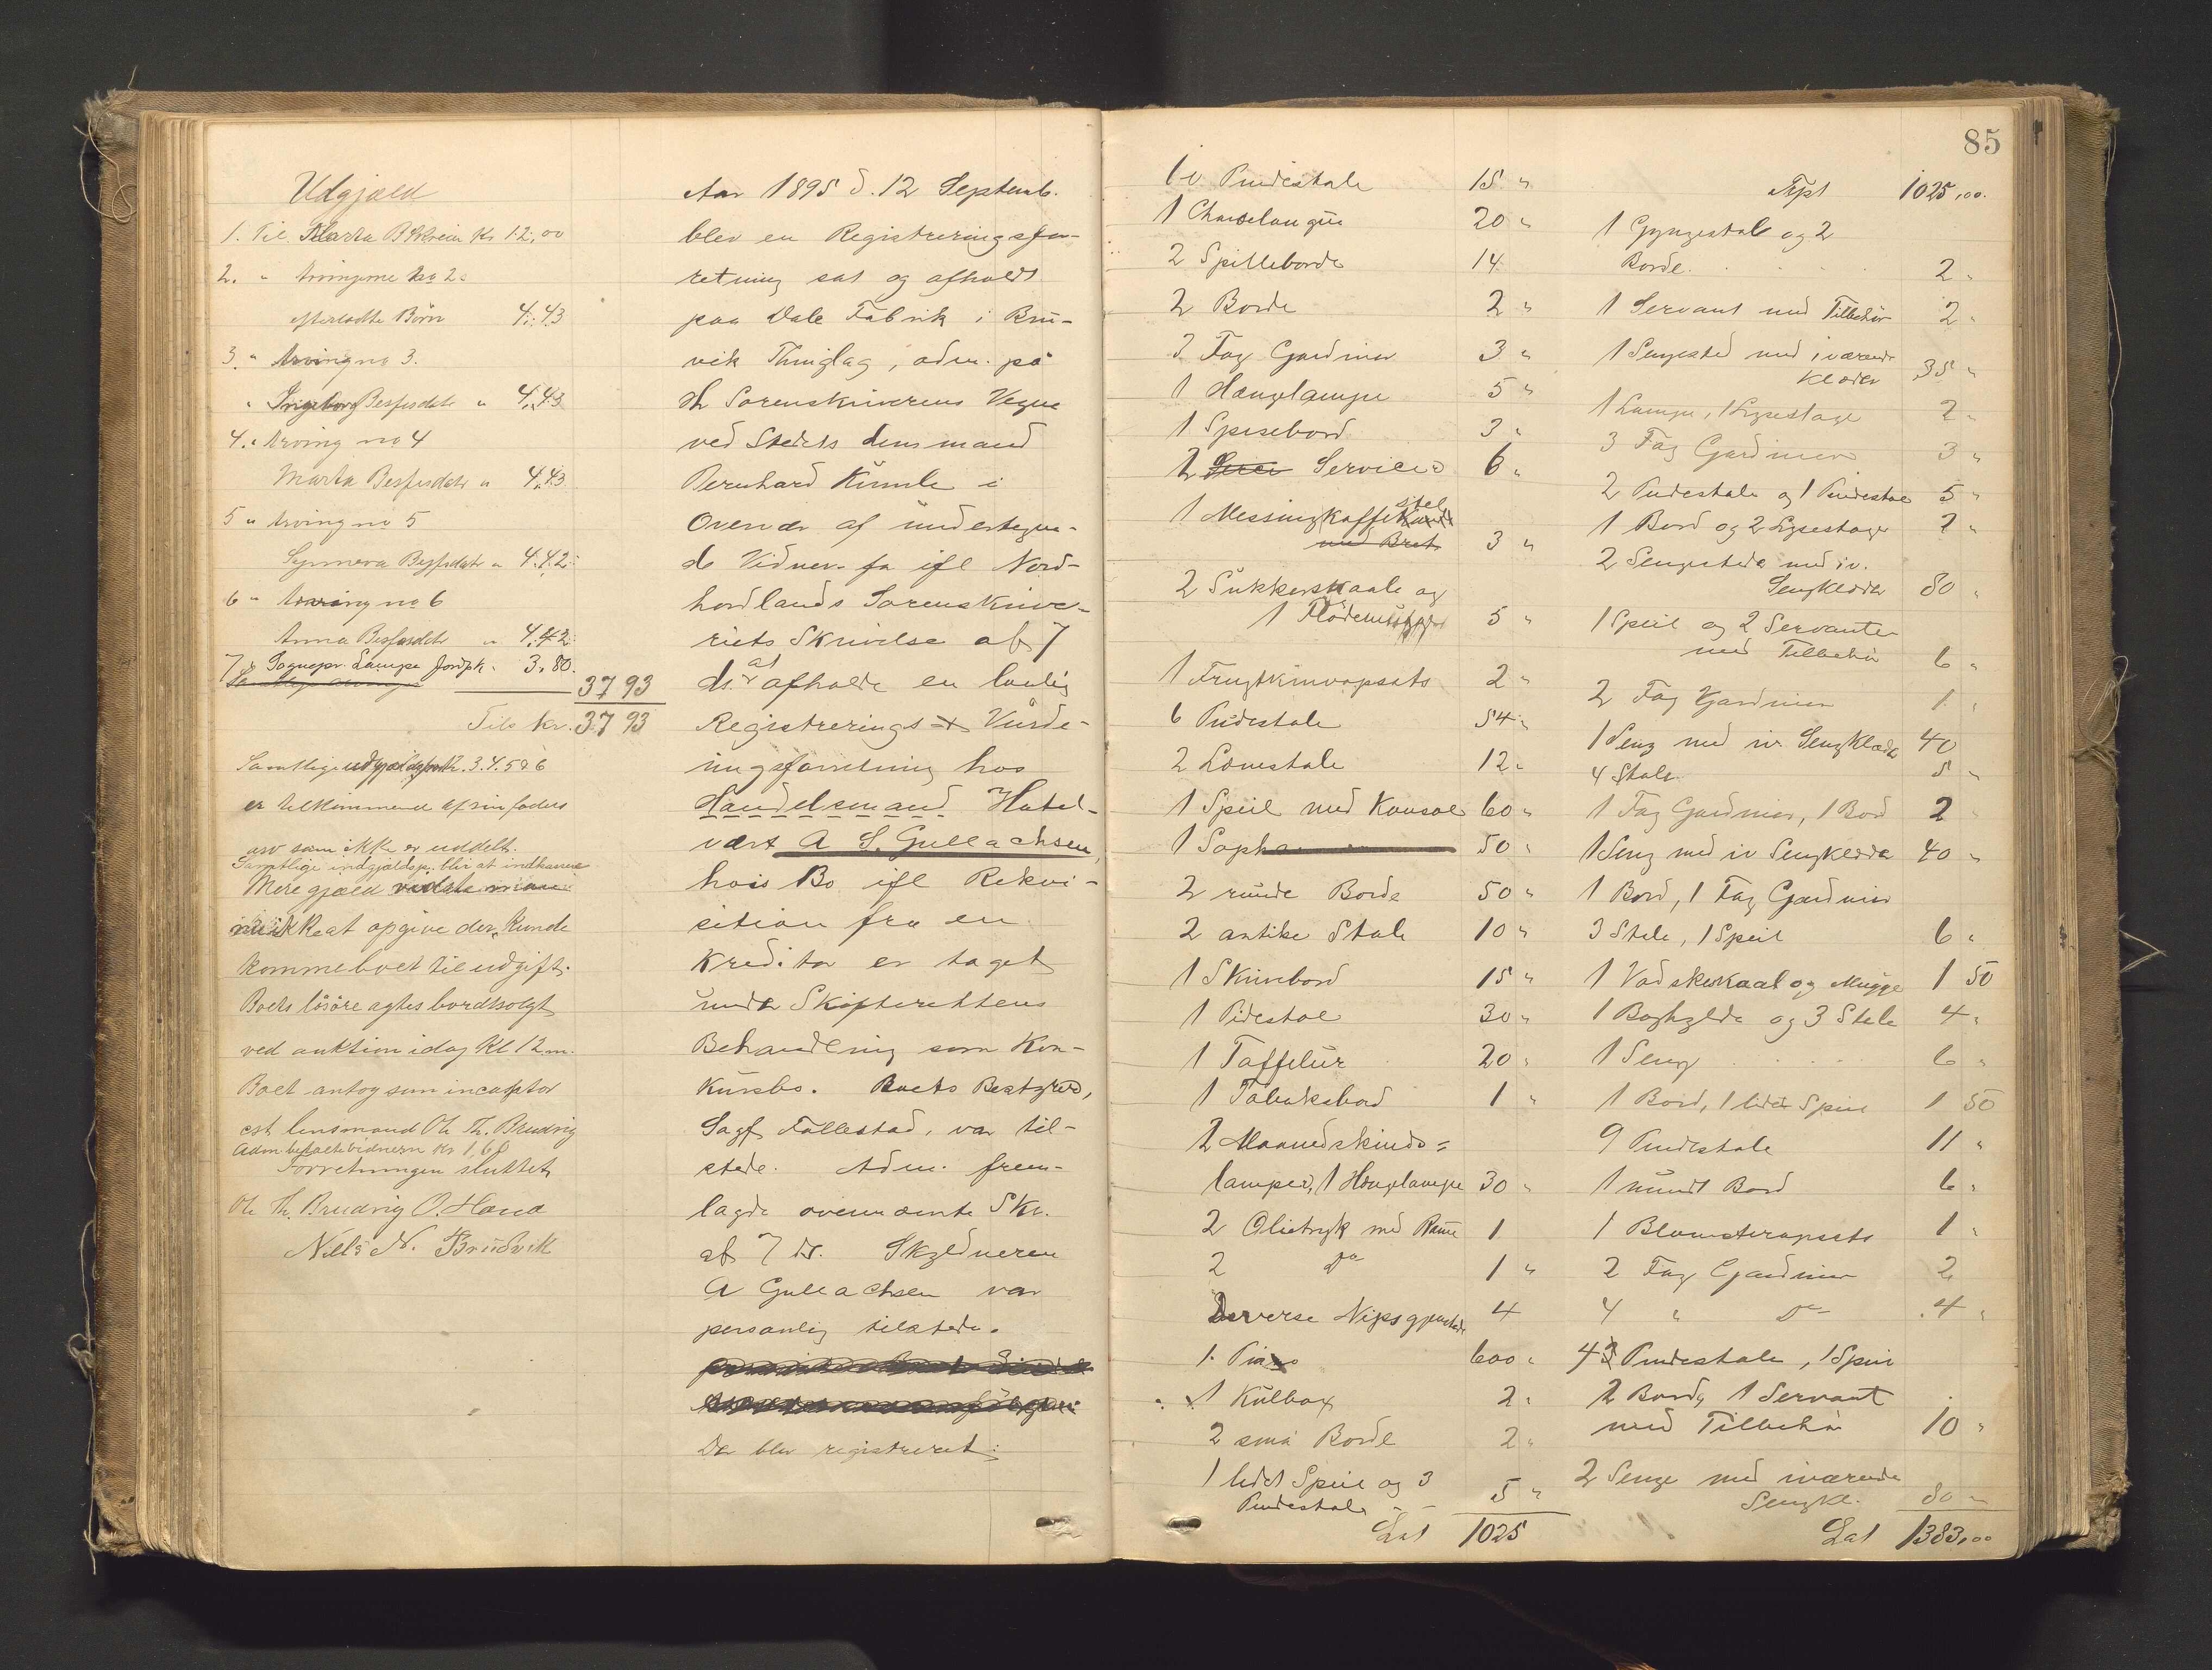 Udgjæld
1. Til Marta B Ekrein Kr 12,00
2. " Arvingerne No 2s
efterladte Börn 4,43
3. " Arving no 3.
" Ingeborg Besfesdatr " 4,43
4. " Arving no 4
Marta Besfesdatr " 4,43
5 " Arving no 5
Synneva Besfesdatr " 4,42
6 " Arving no 6
Anna Besfesdatr " 4,42
7 " Sognepr. Lampe Jordpk. 3,80
37 93
Tils kr. 37 93
Samtlige udgjældspost. 3.4.5 & 6
er tilkommende af sin faders
arv som ikke er uddelt.
Samtlige indgjældsp. blir at indkasere
Mere gjæld vidste man
ikke at opgive der kunde
komme boet til udgift.
Boets lösöre agtes bortsolgt
ved auktion idag Kl 12 m.
Boet antog som incassator
cst. lensmand Ole Th. Brudvig
Adm. betalte vidnern Kr 1,60
Forretningen sluttet
Ole Th. Brudvig O. Hana
Nils N. Brudvik
Aar 1895 d. 12 Septemb.
blev en Registreringsfor-
retning sat og afholdt
paa Dale Fabrik i Bru-
vik Thinglag, adm. på
Hr Sorenskriverens Vegne
ved Stedets Lensmand
Bernhard Kunle i
Overvær af undertegne-
de Vidner. fa ifl Nord-
hordlands Sorenskrive-
riets Skrivelse af 7
ds. at afholde en lovlig
Registrerings & Vurde-
ringsforretning hos
Handelsmand Hotel-
vært A S. Gullachsen,
hvis Bo ifl Rekvi-
sition fra en
Kreditor er taget
under Skifterettens
Behandling som Kon-
kursbo. Boets Bestyrer,
Sagf. Follestad, var til-
stede. Adm. frem-
lagde ovennævnte Skr.
af 7 ds. Skyldneren
A Gullachsen var
personlig tilstede.
Der blev registreret:
85
6 v Pudestole 15 "
1 Chaiselongue 20 "
2 Spilleborde 14
2 Borde 2 "
3 Fag Gardiner 3 "
1 Hænglampe 5 "
1 Spisebord 3 "
2 Servicer 6 "
1 Messingkaffestel
med Bret 3 "
2 Sukkerskaale og
1 Flödemugge 5 "
1 Frugtknivopsats 2 "
6 Pudestole 54 "
2 Lænestole 12 "
1 Speil med Konsol 60 "
1 Sopha 50 "
2 runde Borde 50 "
2 antike Stole 10 "
1 Skrivebord 15 "
1 Pidestal 30 "
1 Taffelur 20 "
1 Tobaksbord 1 "
2 Maanedskinds=
lamper, 1 Hænglampe 30 "
2 Olietryk med Ramme 1
2 Do 1 "
Diverse Nipsgjenstande 4
1. Piano 600 "
1 Kulbox 2 "
2 små Borde 2 "
1 lidet Speil og 3
Pudestole 5 "
Lat 1025
Tspt 1025,00.
1 Gyngestol og 2
Borde 2 "
1 Servant med Tilbehör 2 "
1 Sengested med iværende
Klæder 35 "
1 Lampe, 1 Lysestage 2 "
3 Fag Gardiner 3 "
2 Pudestole og 1 Pindestol 5 "
1 Bord og 2 Lysestager 2 "
2 Sengestede med iv.
Sengklæder 80 "
1 Speil og 2 Servanter
med Tilbehör 6 "
2 Fag Gardiner 1 "
1 Seng med iv. Sengklæder 40
4 Stole 5 "
1 Fag Gardiner, 1 Bord 2 "
1 Seng med iv Sengklæder 40 "
1 Bord, 1 Fag Gardiner
3 Stole, 1 Speil 6 "
1 Vadskeskaal og Mugge 1 50
1 Boghylde og 3 Stole 4 "
1 Seng 6 "
1 Bord, 1 lidet Speil 1 50
9 Pindestole 11 "
1 rundt Bord 6 "
1 Blomsteropsats 1 "
2 Fag Gardiner 2
4 " Do 4 "
4 Pindestole, 1 Speil
2 Borde, 1 Servant
med Tilbehör 10 "
2 Senge med iværende
Sengkl. 80 "
Lat 1383,00